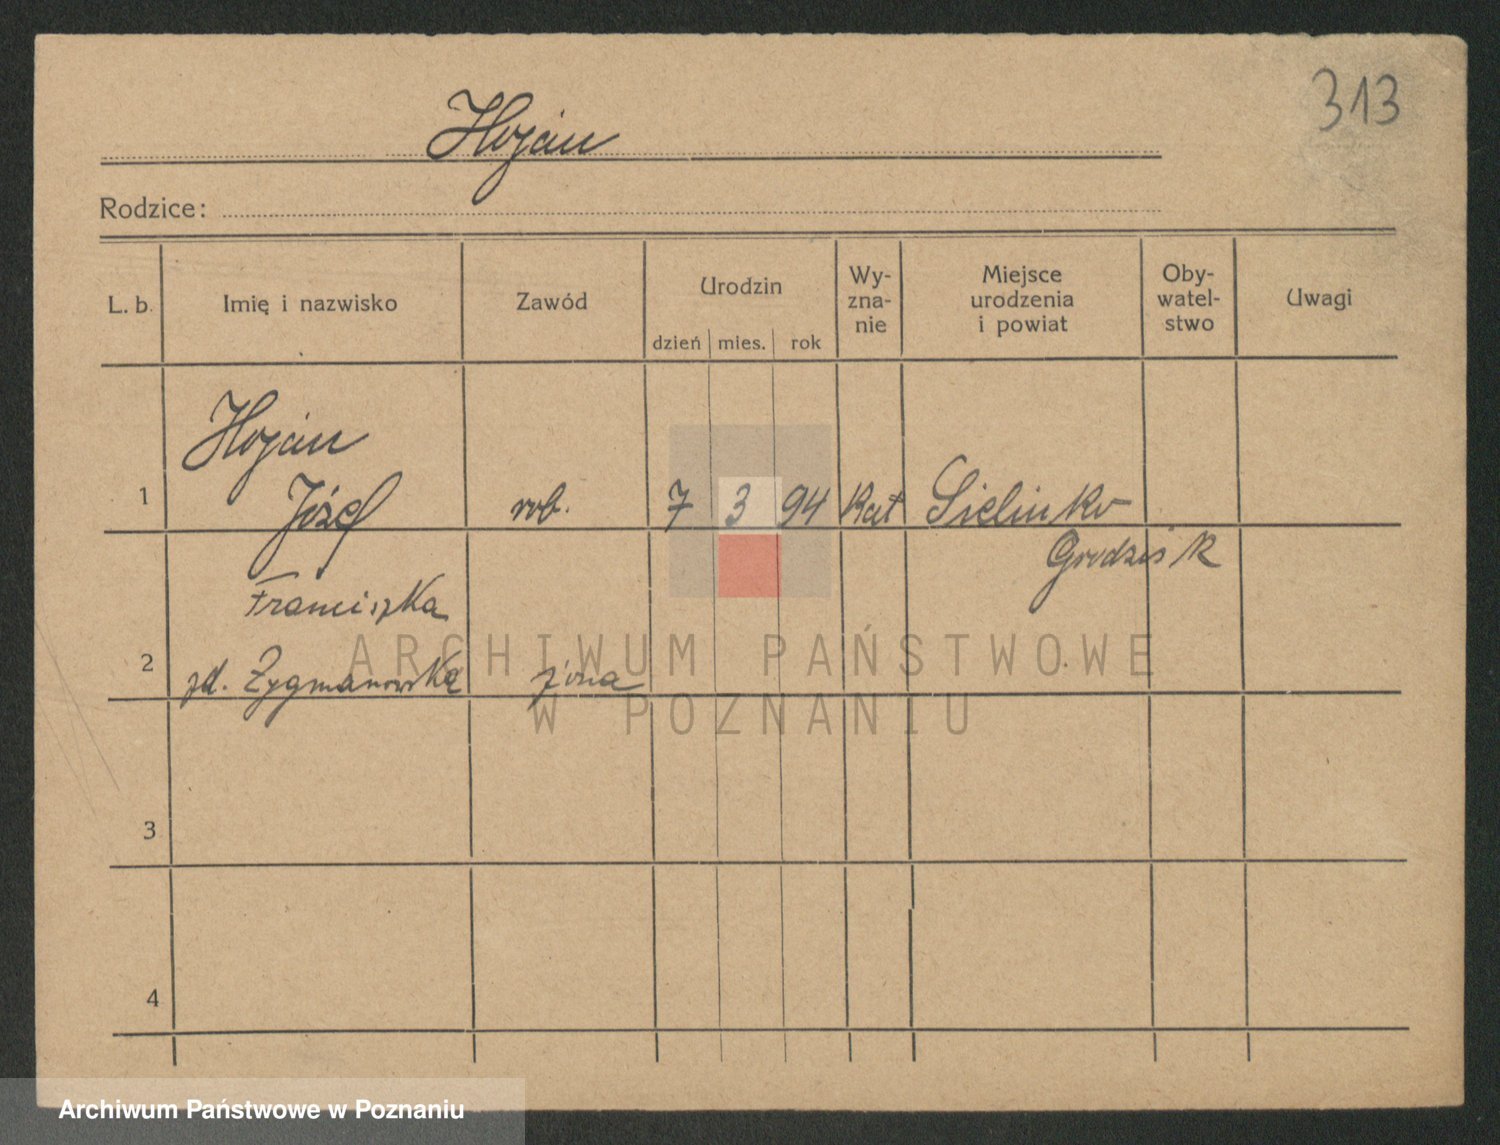 313
Hojan
Rodzice:
L. b.
Imię i nazwisko
Zawód
Urodzin
dzień mies. rok
Wy-
zna-
nie
Miejsce
urodzenia
i powiat
Oby-
watel-
stwo
Uwagi
Hojan
1 Józef rob. 7 3 94 Kat Sielinko
Grodzisk
Franciszka
2 zd. Zygmanowska żona
3
4
ARCHIWUM PAŃSTWOWE
W POZNANIU
Archiwum Państwowe w Poznaniu